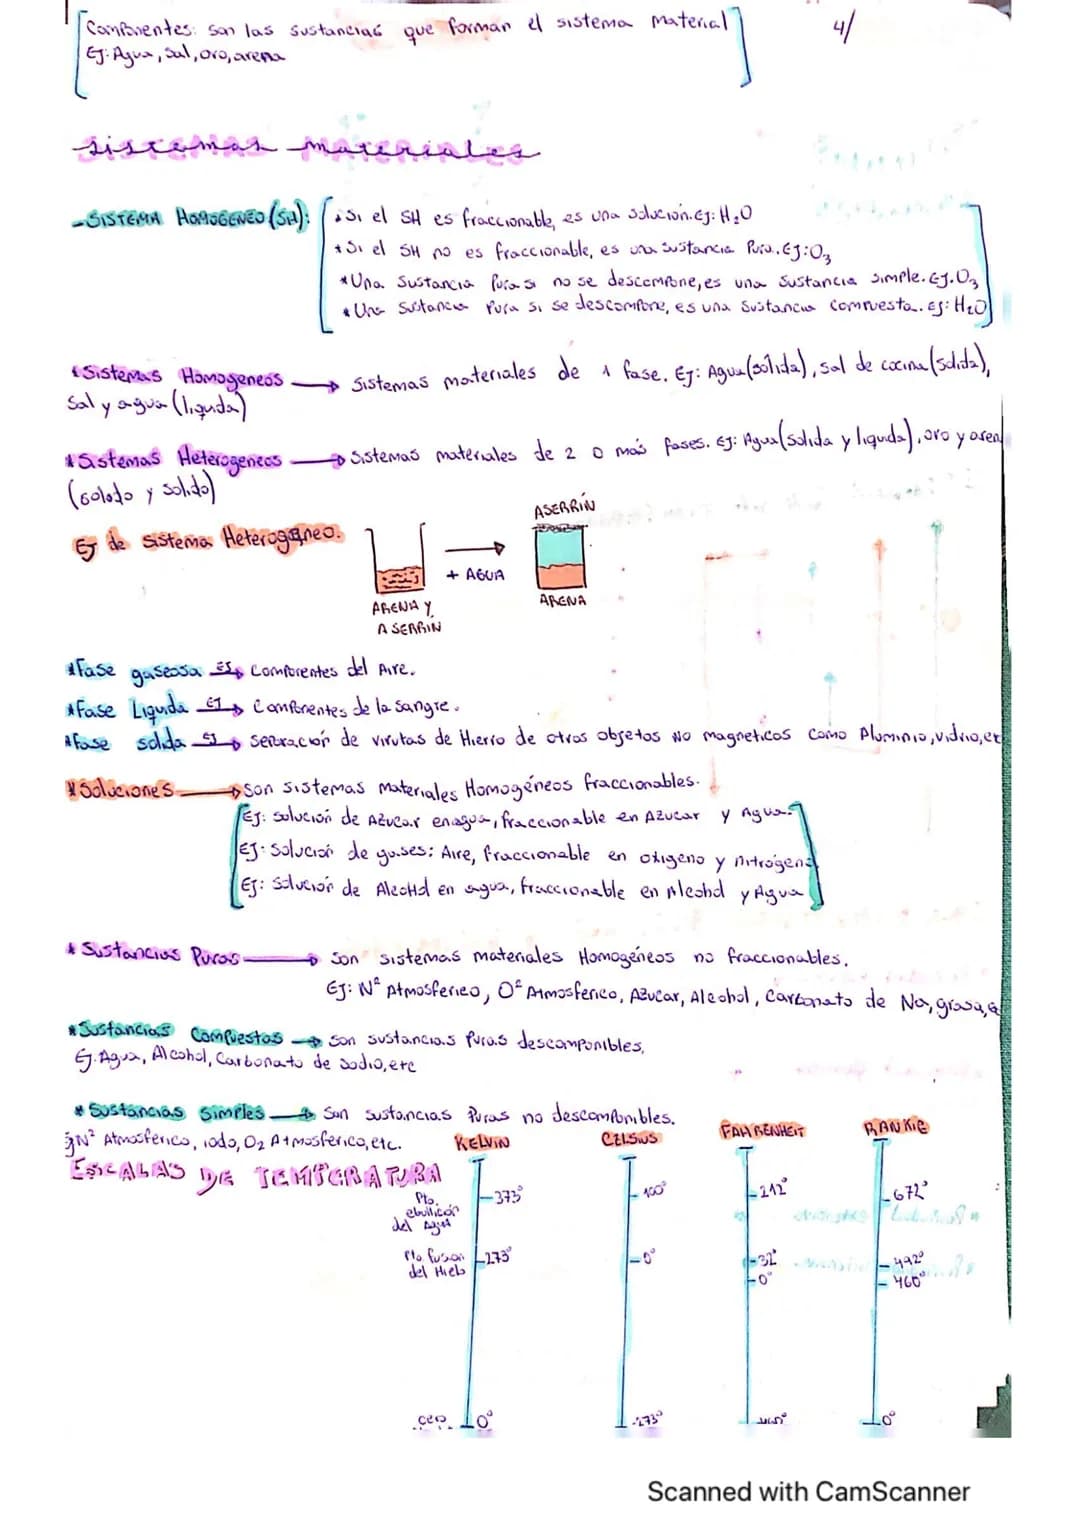 Componentes: son las sustancias que forman el sistema material
4/
Ej: Agua, sal, oro, arena
sistemas materiales
- SISTEMA HOMOGENEO (SH):
* Si el SH es fraccionable, es una solución. Ej: H₂O
* Si el SH no es fraccionable, es una sustancia Pura. Ej: O₃
* Una Sustancia Pura si no se descompone, es una Sustancia simple. Ej. O₃
* Una Sustancia Pura si se descompone, es una Sustancia compuesta. Ej: H₂O
* Sistemas Homogeneos → Sistemas materiales de 1 fase. Ej: Agua (sólida), sal de cocina (solida),
Sal y agua (liquida)
* Sistemas Heterogeneos → Sistemas materiales de 2 o más fases. Ej: Agua (solida y liquida), oro y aren
(solido y solido)
Ej de sistema Heterogéneo.
ASERRÍN
+ AGUA
ARENA Y
ASERRÍN
ARENA
* Fase gaseosa Ej→ Componentes del Aire.
* Fase Liquida Ej→ Componentes de la sangre.
* fase solida Ej→ separación de virutas de Hierro de otros objetos no magneticos como Aluminio, vidrio, etc
* Soluciones → Son sistemas materiales Homogéneos fraccionables.
Ej: solución de Azucar en agua, fraccionable en Azucar y Agua.
Ej: Solución de gases: Aire, fraccionable en oxigeno y nitrógeno
Ej: Solución de Alcohol en agua, fraccionable en Alcohol y Agua
* Sustancias Puras → Son sistemas materiales Homogéneos no fraccionables.
Ej: N² Atmosferico, O² Atmosferico, Azucar, Alcohol, Carbonato de Na, grasa,
* Sustancias Compuestas → Son sustancias Puras descomponibles.
Ej. Agua, Alcohol, Carbonato de sodio, etc
* Sustancias Simples → Son sustancias Puras no descomponibles.
Ej N² Atmosferico, iodo, O₂ Atmosferico, etc.
ESCALAS DE TEMPERATURA
KELVIN
CELSIUS
FAHRENHEIT
RANKIE
Pto. ebullición del Agua
373°
100°
212°
672°
Pto fusion del Hielo
273°
0°
32°
492°
0°
460°
0°
-273°
0°
Scanned with CamScanner